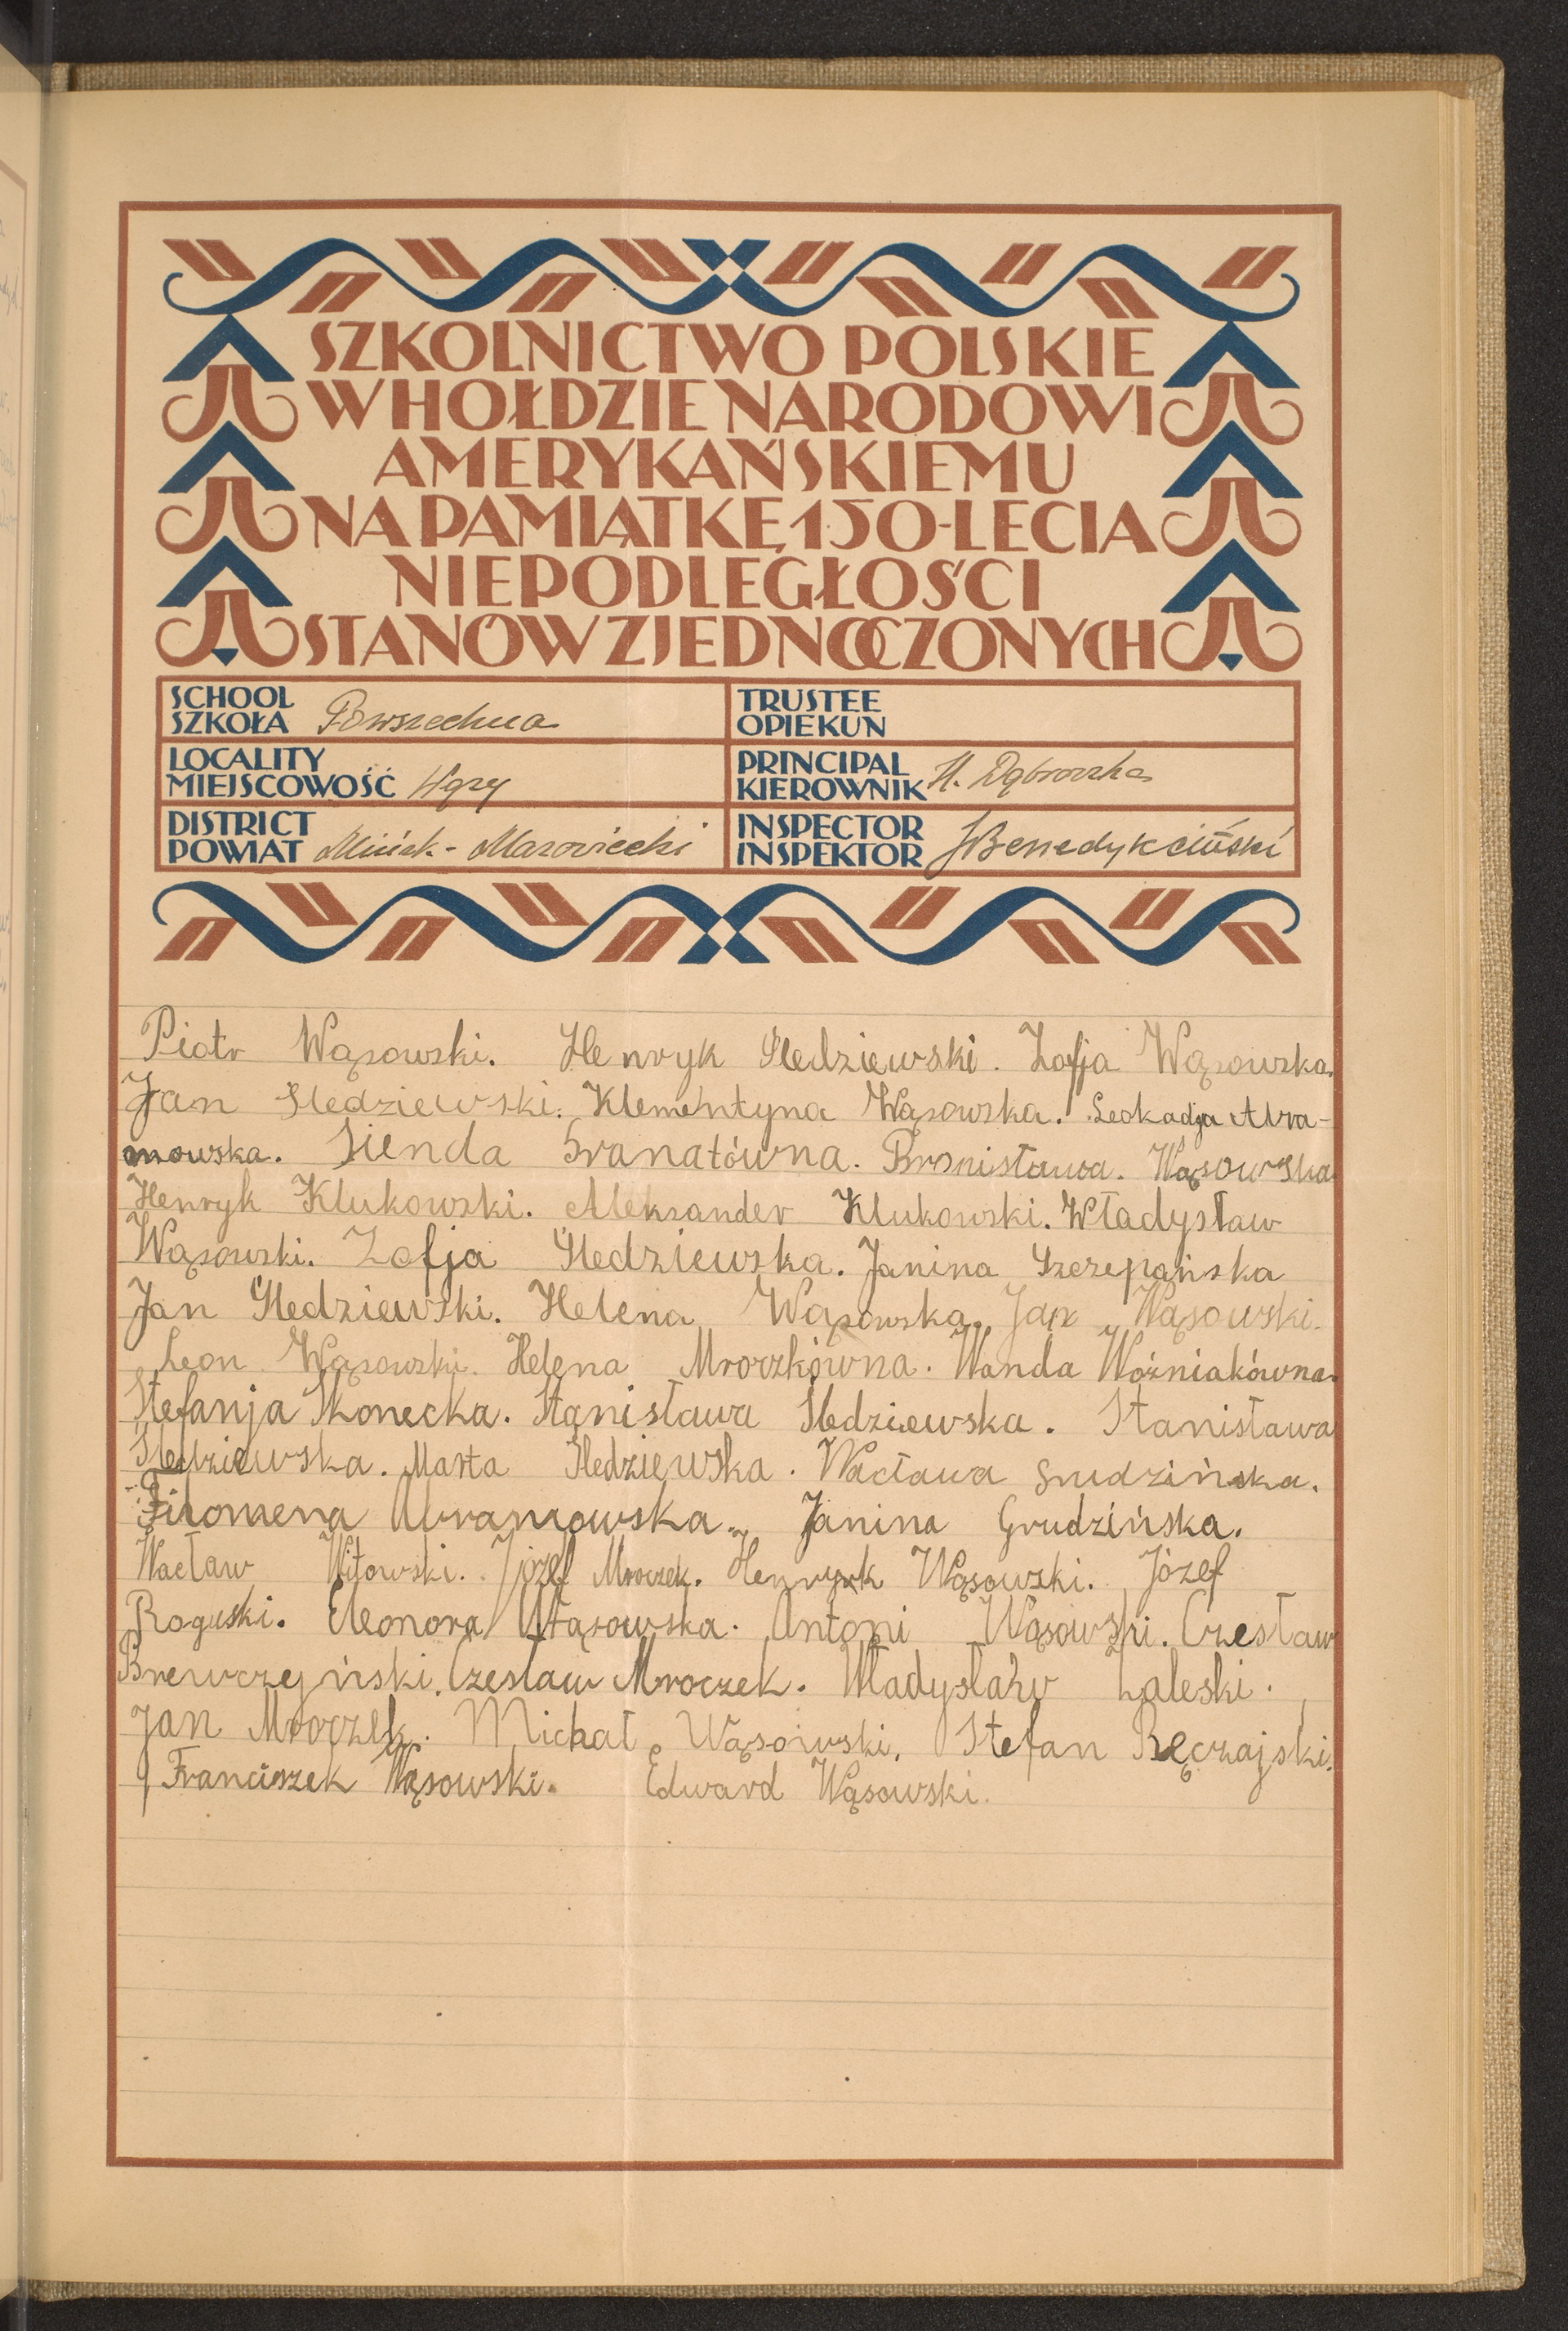 SZKOLNICTWO POLSKIE
W HOŁDZIE NARODOWI
AMERYKAŃSKIEMU
NA PAMIĄTKĘ 150-LECIA
NIEPODLEGŁOŚCI
STANÓW ZJEDNOCZONYCH
SCHOOL
SZKOŁA Powszechna
TRUSTEE
OPIEKUN
LOCALITY
MIEJSCOWOŚĆ
PRINCIPAL
KIEROWNIK H. Dąbrowska
DISTRICT
POWIAT Mińsk - Mazowiecki
INSPECTOR
INSPEKTOR Benedykciński
Piotr Wąsowski. Henryk Śledziewski. Zofja Wąsowska.
Jan Śledziewski. Klementyna Wąsowska. Leokadja Abra-
mowska. Sienda Granatówna. Bronisława. Wąsowska
Henryk Klukowski. Aleksander Klukowski. Władysław
Wąsowski. Zofja Śledziewska. Janina Szczepańska
Jan Śledziewski. Helena Wąsowska. Jan Wąsowski.
Leon Wąsowski. Helena Mroczkówna. Wanda Woźniakówna.
Stefanja Skonecka. Stanisława Śledziewska. Stanisława
Śledziewska. Marta Śledziewska. Wacława Grudzińska.
Filomena Abramowska. Janina Grudzińska.
Wacław Witowski. Józef Mroczek. Henryk Wąsowski. Józef
Roguski. Eleonora Wąsowska. Antoni Wąsowski. Czesław
Brewczyński. Czesław Mroczek. Władysław Zaleski.
Jan Mroczek. Michał Wąsowski. Stefan Ręczajski.
Franciszek Wąsowski. Edward Wąsowski.